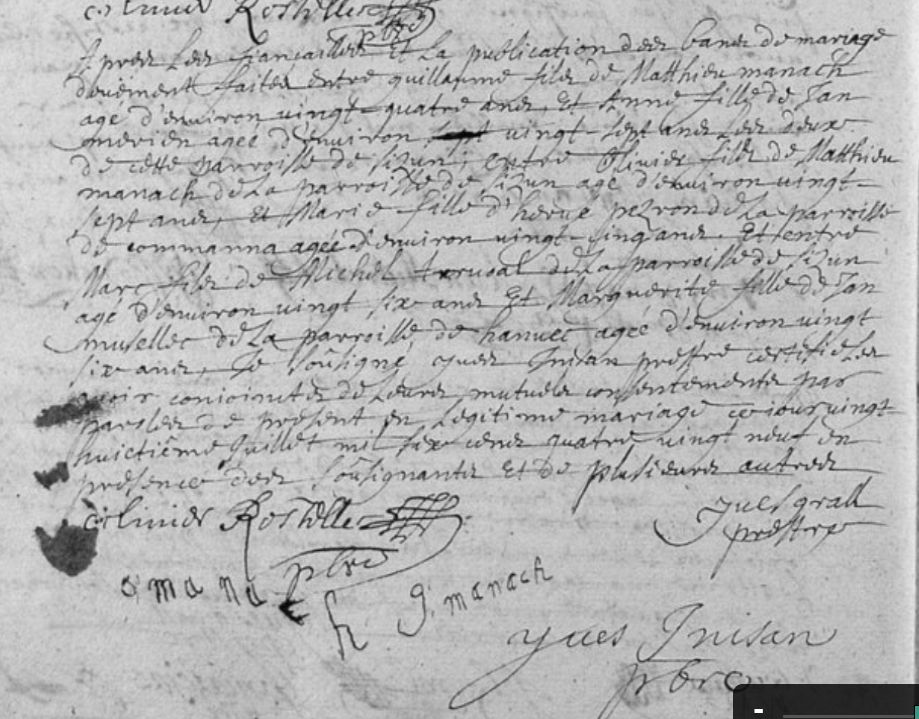 olivier Rostellec
pbre
Apres les fiancailles et la publication des bans de mariage
deuement faites entre guillaume fils de Matthieu manach
agé d'environ vingt-quatre ans, Et Anne fille de Jan
merien agee d'environ vingt-sept ans les deux
de cette parroisse de sizun, entre Olivier fils de Matthieu
manach de la parroisse de sizun agé d'environ vingt-
sept ans, et Marie fille d'hervé pezron de la parroisse
de commanna agee d'environ vingt-cinq ans. Et entre
Marc fils de Michel de la parroisse de sizun
agé d'environ vingt six ans Et Marguerite fille de Jan
musellec de la parroisse de hanvec agée d'environ vingt
six ans, Je soûsigné yves Inisan prestre certifie les
avoir conioints de leurs mutuels consentements par
parsles de présent en Legitime mariage ce iour vingt
huictiême Juillet mil six cens quatre vingt neuf en
présence des soûsignants Et de plusieurs autres
olivier Rostellec Yves grall
prestre
pbre
o mana h g. manach
yves Inisan
pbre